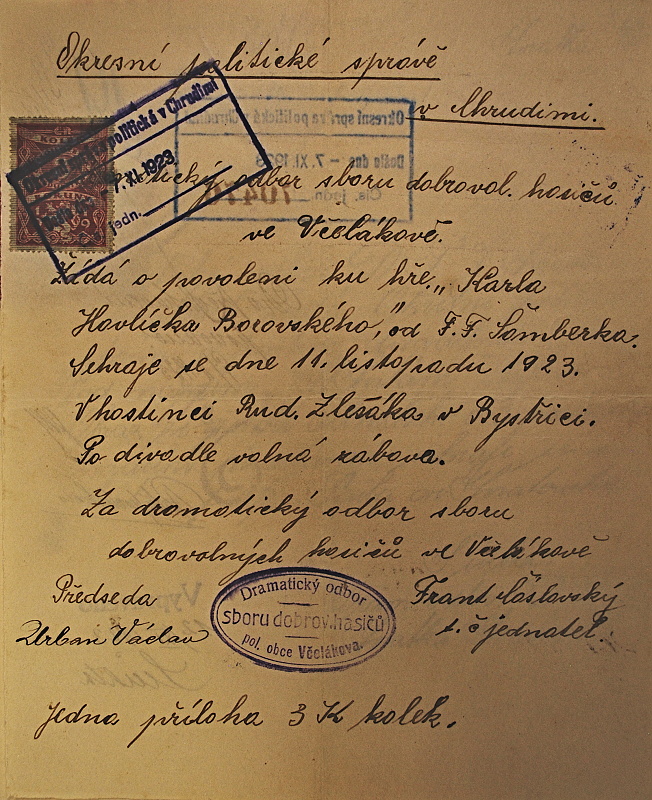 Okresní politické správě
v Chrudimi.
Okresní správa politická v Chrudimi
7. XI. 1923
jedn.
odbor sboru dobrovol. hasičů
ve Včelákově.
Žádá o povolení ku hře „Karla
Havlíčka Borovského," od F. F. Šamberka.
Sehraje se dne 11. listopadu 1923.
V hostinci Rud. Zlesáka v Bystřici.
Po divadle volná zábava.
Za dramatický odbor sboru
dobrovolných hasičů ve Včelákově
Předseda
Urban Václav
Dramatický odbor
sboru dobrov. hasičů
pol. obce Včelákova.
Frant. Částavský
t. č. jednatel.
Jedna příloha 3 K kolek.